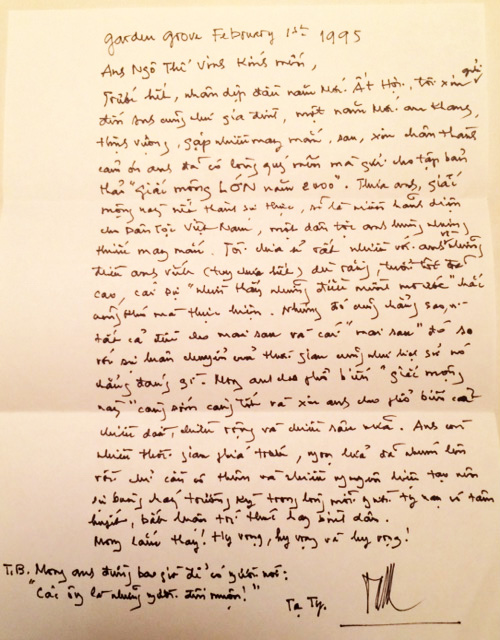 Garden Grove February 1st 1995
Anh Ngô Thế Vinh kính mến,
Trước hết, nhân dịp đầu năm Mới Ất Hợi, tôi xin gửi
đến anh cùng chị gia đình, một năm Mới an khang,
thịnh vượng, gặp nhiều may mắn, sau, xin chân thành
cảm ơn anh đã có lòng quý mến mà gửi cho tập bản
thảo "Giấc mộng LỚN năm 2000". Thưa anh, giấc
mộng này nếu thành sự thực, sẽ là niềm hãnh diện
cho Dân Tộc Việt Nam, một dân tộc anh hùng nhưng
thiếu may mắn. Tôi chia sẻ rất nhiều với anh về những
điều anh viết (tuy chưa hết) dù rằng tuổi tôi đã
cao, cái sự "nhìn thấy những điều mình mơ ước" chắc
cũng khó mà thực hiện. Nhưng đó cũng chẳng sao, vì
tất cả đều cho mai sau và cái "mai sau" đó so
với sự luân chuyển của thời gian cũng như lịch sử nó
chẳng đáng gì. Mong anh cho phổ biến "giấc mộng
này" càng sớm càng tốt và xin anh cho phổ biến cả
chiều dài, chiều rộng và chiều sâu nữa. Anh còn
nhiều thời gian phía trước, ngọn lửa đã nhóm lên
rồi chỉ cần có thêm và nhiều nguyên liệu tạo nên
sự bùng cháy trong lòng mỗi người tỵ nạn có tâm
huyết, bất luận trí thức hay bình dân.
Mong lắm thay! Hy vọng, hy vọng và hy vọng!
T.B. Mong anh đừng bao giờ để có người nói:
"Các ông là những người đến muộn!"
Tạ Tỵ.